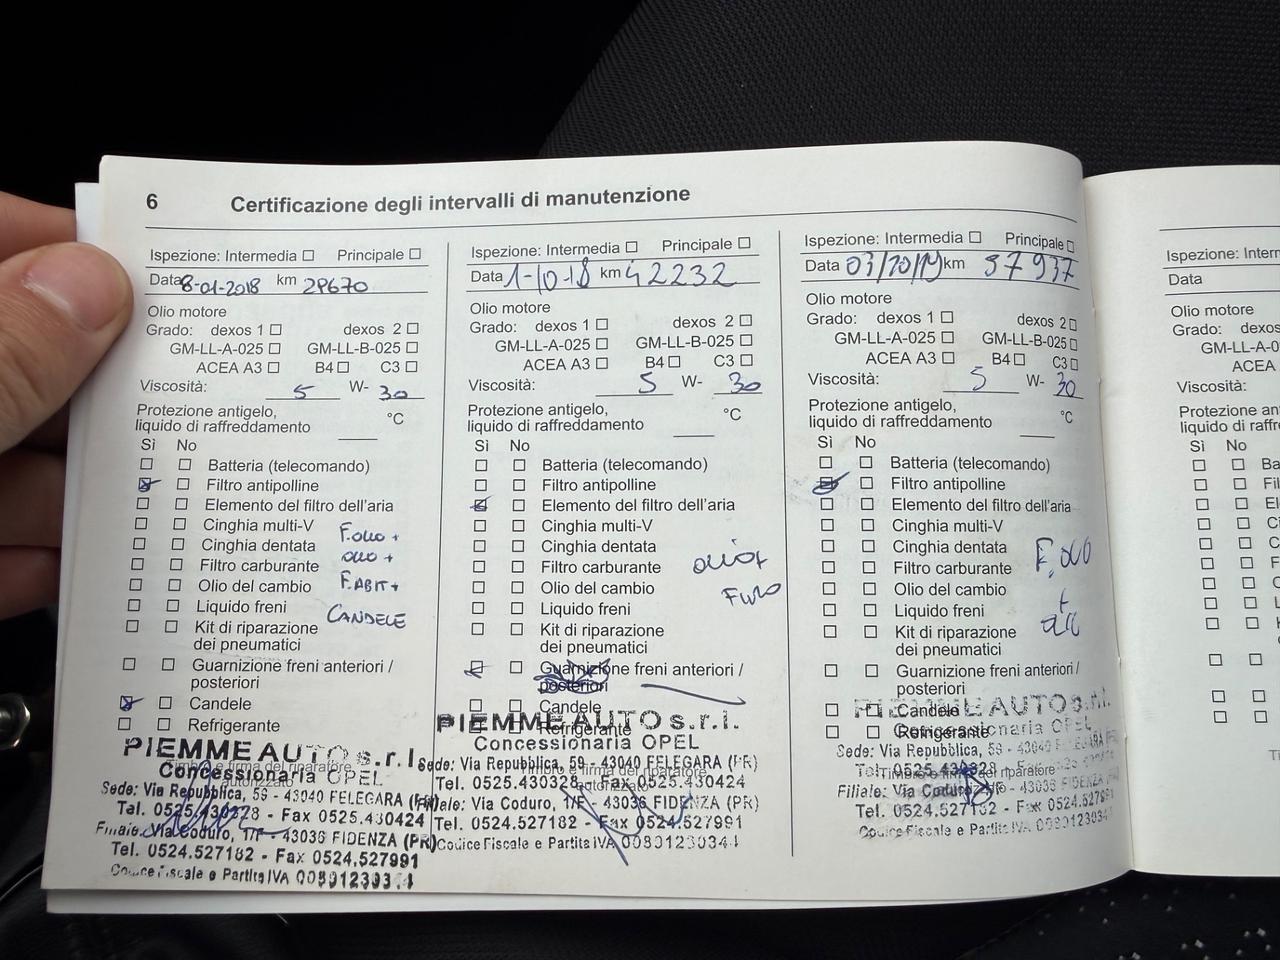 6 Certificazione degli intervalli di manutenzione
Ispezione: Intermedia Principale
Data 8-01-2018 km 29670
Olio motore
Grado: dexos 1 dexos 2
GM-LL-A-025 GM-LL-B-025
ACEA A3 B4 C3
Viscosità: 5 W- 30
Protezione antigelo,
liquido di raffreddamento °C
Sì No
Batteria (telecomando)
Filtro antipolline
Elemento del filtro dell'aria
Cinghia multi-V
Cinghia dentata
Filtro carburante
Olio del cambio
Liquido freni
Kit di riparazione
dei pneumatici
Guarnizione freni anteriori /
posteriori
Candele
Refrigerante
F.olio +
olio +
F.ABIT+
CANDELE
Timbro e firma del riparatore
autorizzato
PIEMME AUTO s.r.l.
Concessionaria OPEL
Sede: Via Repubblica, 59 - 43040 FELEGARA (PR)
Tel. 0525.430328 - Fax 0525.430424
Filiale: Via Coduro, 1/F - 43036 FIDENZA (PR)
Tel. 0524.527182 - Fax 0524.527991
Codice Fiscale e Partita IVA 00801230344
Ispezione: Intermedia Principale
Data 1-10-18 km 42232
Olio motore
Grado: dexos 1 dexos 2
GM-LL-A-025 GM-LL-B-025
ACEA A3 B4 C3
Viscosità: 5 W- 30
Protezione antigelo,
liquido di raffreddamento °C
Sì No
Batteria (telecomando)
Filtro antipolline
Elemento del filtro dell'aria
Cinghia multi-V
Cinghia dentata
Filtro carburante
Olio del cambio
Liquido freni
Kit di riparazione
dei pneumatici
Guarnizione freni anteriori /
posteriori
Candele
Refrigerante
Timbro e firma del riparatore
autorizzato
PIEMME AUTO s.r.l.
Concessionaria OPEL
Sede: Via Repubblica, 59 - 43040 FELEGARA (PR)
Tel. 0525.430328 - Fax 0525.430424
Filiale: Via Coduro, 1/F - 43036 FIDENZA (PR)
Tel. 0524.527182 - Fax 0524.527991
Codice Fiscale e Partita IVA 00801230344
Ispezione: Intermedia Principale
Data 03/10/19 km 57937
Olio motore
Grado: dexos 1 dexos 2
GM-LL-A-025 GM-LL-B-025
ACEA A3 B4 C3
Viscosità: 5 W- 30
Protezione antigelo,
liquido di raffreddamento °C
Sì No
Batteria (telecomando)
Filtro antipolline
Elemento del filtro dell'aria
Cinghia multi-V
Cinghia dentata
Filtro carburante
Olio del cambio
Liquido freni
Kit di riparazione
dei pneumatici
Guarnizione freni anteriori /
posteriori
Candele
Refrigerante
Timbro e firma del riparatore
PIEMME AUTO s.r.l.
Concessionaria OPEL
Sede: Via Repubblica, 59 - 43040 FELEGARA
Tel. 0525.430328
Filiale: Via Coduro, 1/F - 43036 FIDENZA
Tel. 0524.527182 - Fax 0524.5279
Codice Fiscale e Partita IVA
Ispezione: Interm
Data
Olio motore
Grado: dexos
GM-LL-A-0
ACEA
Viscosità:
Protezione antig
liquido di raffre
Sì No